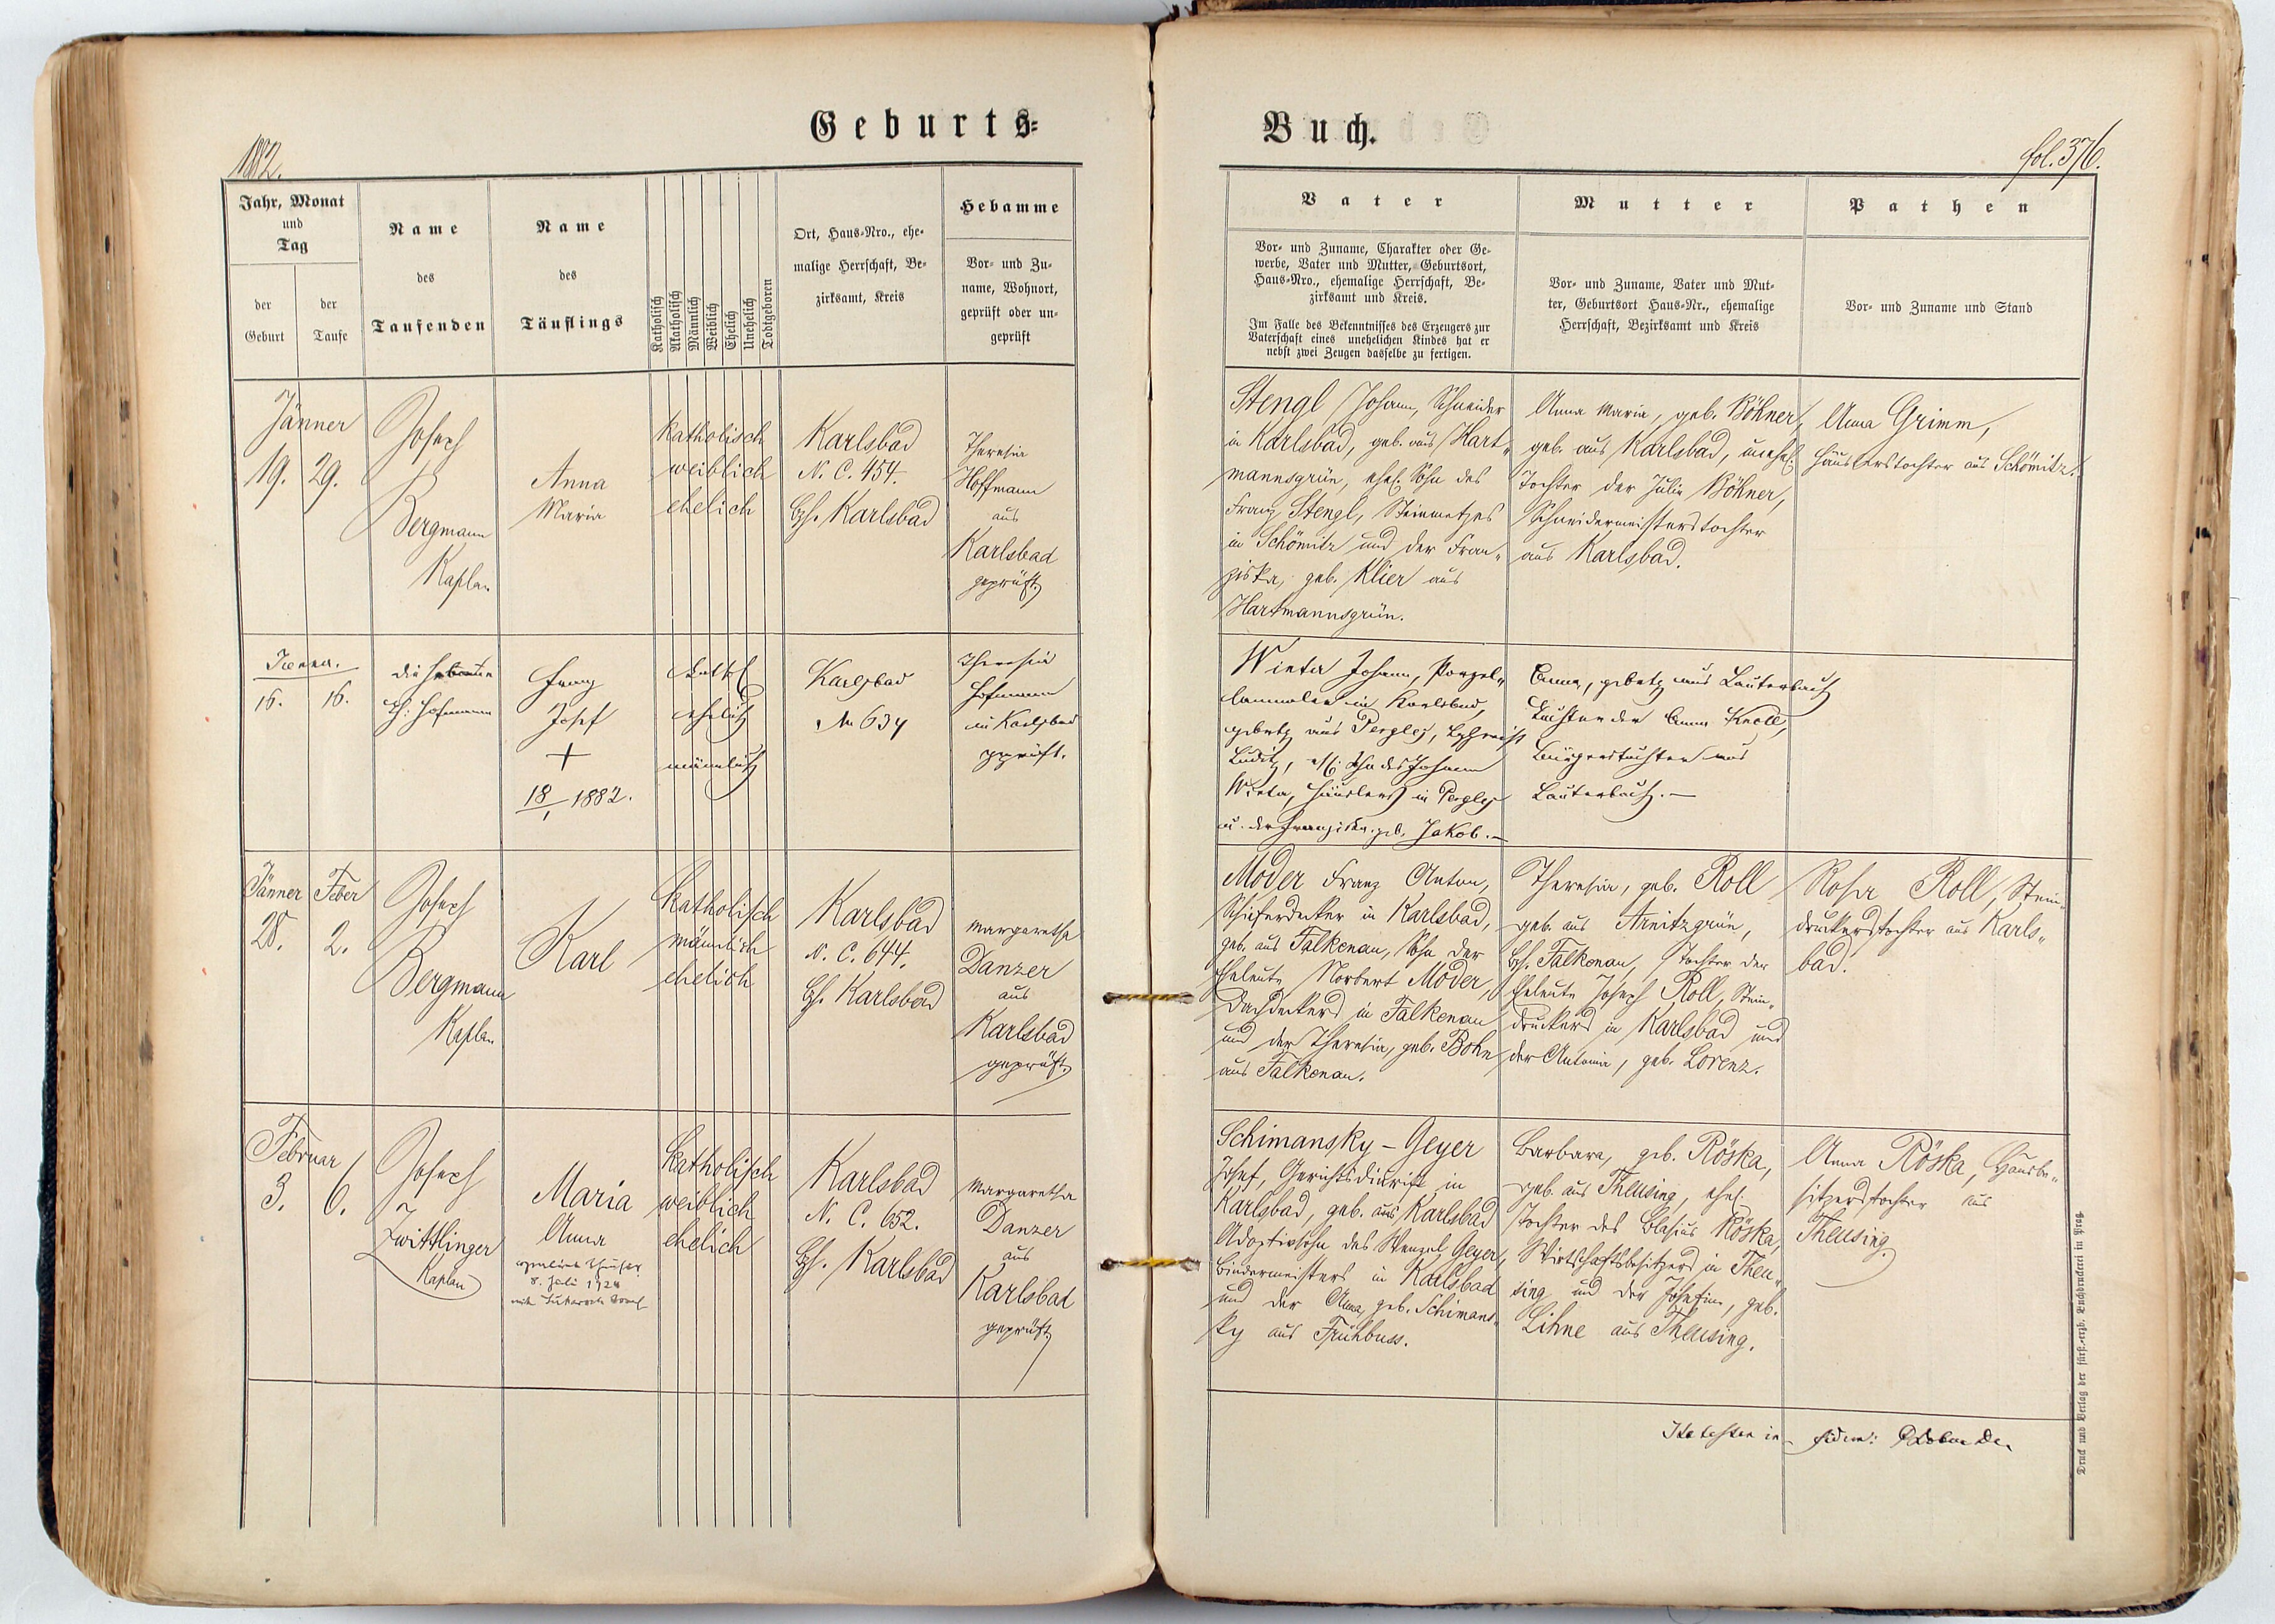 Geburts-
Buch.
1882.
fol. 376.
Jahr, Monat
und
Tag
der
Geburt
der
Taufe
Name
des
Taufenden
Name
des
Täuflings
Katholisch
Akatholisch
Männlich
Weiblich
Ehelich
Unehelich
Todtgeboren
Ort, Haus-Nro., ehe-
malige Herrschaft, Be-
zirksamt, Kreis
Hebamme
Vor- und Zu-
name, Wohnort,
geprüft oder un-
geprüft
Vater
Vor- und Zuname, Charakter oder Ge-
werbe, Vater und Mutter, Geburtsort,
Haus-Nro., ehemalige Herrschaft, Be-
zirksamt und Kreis.
Im Falle des Bekenntnisses des Erzeugers zur
Vaterschaft eines unehelichen Kindes hat er
nebst zwei Zeugen dasselbe zu fertigen.
Mutter
Vor- und Zuname, Vater und Mut-
ter, Geburtsort Haus-Nr., ehemalige
Herrschaft, Bezirksamt und Kreis
Pathen
Vor- und Zuname und Stand
Jänner
19. 29.
Joseph
Bergmann
Kaplan
Anna
Maria
katholisch
weiblich
ehelich
Karlsbad
N. C. 454.
Bzh. Karlsbad
Theresia
Hoffmann
aus
Karlsbad
geprüft
Stengl Johann, Schneider
in Karlsbad, geb. aus Hart-
mannsgrün, ehel. Sohn des
Franz Stengl, Steinmetzes
in Schömitz und der Fran-
ziska, geb. Klier aus
Hartmannsgrün.
Anna Maria, geb. Böhner,
geb. aus Karlsbad, unehel.
Tochter der Julie Böhner,
Schneidermeisterstochter
aus Karlsbad.
Anna Grimm,
Häuslerstochter aus Schömitz.
Jänner.
16. 16.
die Hebamme
Th: Hofmann
Franz
Josef
+
18/1 1882.
kathl
ehelich
männlich
Karlsbad
No 634
Theresia
Hofmann
in Karlsbad
geprüft.
Winter Johann, Porzel-
lanmaler in Karlsbad,
gebürtg aus Pergles,
Luditz, ehl. Sohn des Johann
Winter, Häuslers in Pergles
u. der Franziska geb. Jakob.—
Anna, gebürtg aus Lauterbach
Tochter der Anna Knoll,
Bürgerstochter aus
Lauterbach.—
Jänner Feber
28. 2.
Joseph
Bergmann
Kaplan
Karl
katholisch
männlich
ehelich
Karlsbad
N. C. 644.
Bzh. Karlsbad
Margaretha
Danzer
aus
Karlsbad
geprüft
Moder Franz Anton,
Schieferdecker in Karlsbad,
geb. aus Falkenau, Sohn der
Eheleute Norbert Moder,
Dachdeckers in Falkenau
und der Theresia, geb. Bohn
aus Falkenau.
Theresia, geb. Roll
geb. aus Arnitzgrün,
Bzh. Falkenau, Tochter der
Eheleute Joseph Roll, Stein-
druckers in Karlsbad und
der Antonia, geb. Lorenz.
Rosa Roll, Stein-
druckerstochter aus Karls-
bad.
Februar
3. 6.
Joseph
Zwittlinger
Kaplan
Maria
Anna
8. Juli 1924
mit
katholisch
weiblich
ehelich
Karlsbad
N. C. 652.
Bzh. Karlsbad
Margaretha
Danzer
aus
Karlsbad
geprüft
Schimansky-Geyer
Josef, Gerichtsdiurnist in
Karlsbad, geb. aus Karlsbad
Adoptivsohn des Wenzel Geyer,
Bindermeisters in Karlsbad
und der Anna, geb. Schimans-
ky aus Frühbuss.
Barbara, geb. Röska,
geb. aus Theusing, ehel.
Tochter des Blasius Röska,
Wirtschaftsbesitzers in Theu-
sing und der Josefine, geb.
Lihne aus Theusing.
Anna Röska, Hausbe-
sitzerstochter aus
Theusing.
in fidem:
Druck und Verlag der fürst.-erzb. Buchdruckerei in Prag.